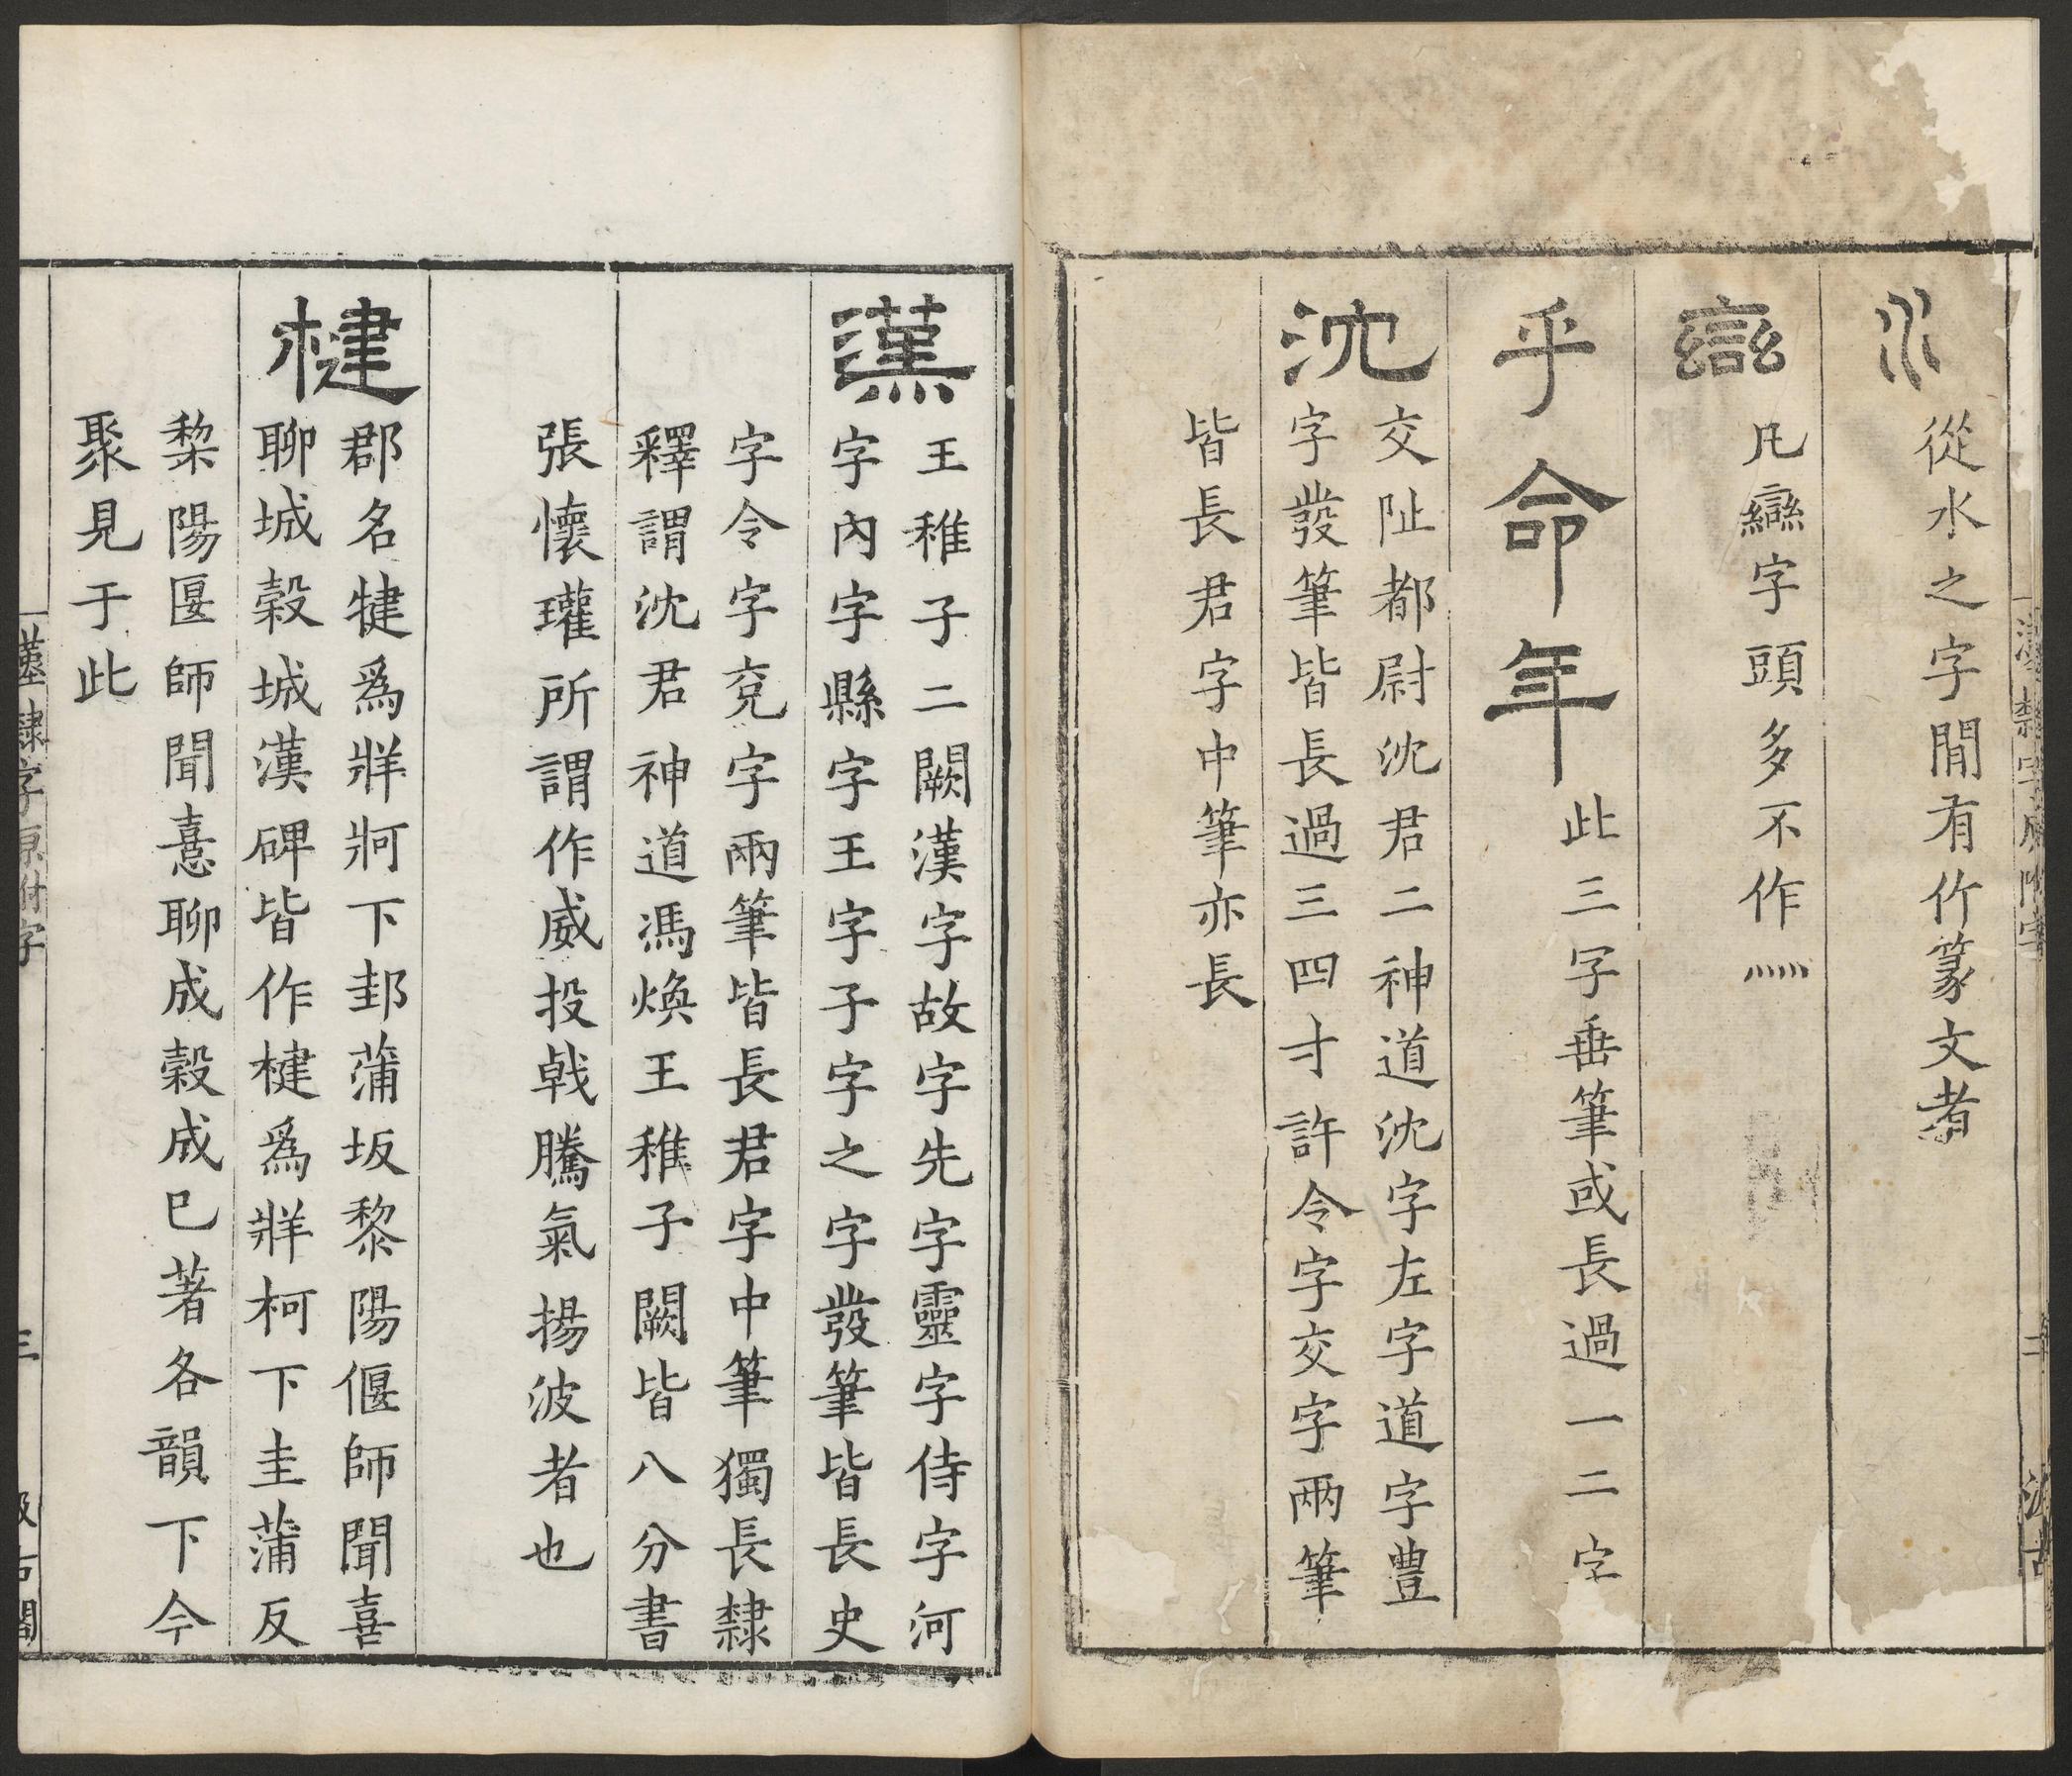 氵從水之字閒有作篆文者
䜌凡䜌字頭多不作灬
乎命年此三字垂筆或長過一二字
沈交阯都尉沈君二神道沈字左字道字豊
字發筆皆長過三四寸許令字交字兩筆
皆長君字中筆亦長
漢王稚子二闕漢字故字先字靈字侍字河
字內字縣字王字子字之字發筆皆長史
字令字兗字兩筆皆長君字中筆獨長隸
釋謂沈君神道馮煥王稚子闕皆八分書
張懷瓘所謂作威投戟騰氣揚波者也
楗郡名犍爲牂牁下邽蒲坂黎陽偃師聞喜
聊城穀城漢碑皆作楗爲牂柯下圭蒲反
棃陽匽師聞憙聊成穀成巳著各韻下今
聚見于此
漢隸字原附字
三
汲古閣